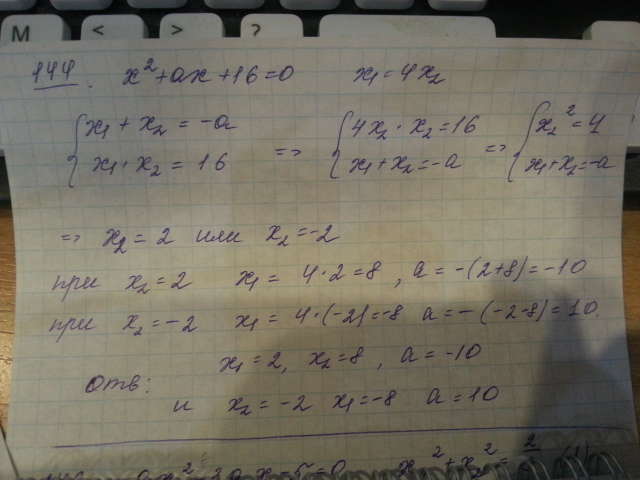 M < > ?
144. x²+ax+16=0 x₁=4x₂
{x₁+x₂=-a {4x₂·x₂=16 {x₂²=4
x₁·x₂=16 => x₁+x₂=-a => x₁+x₂=-a
=> x₂=2 или x₂=-2
при x₂=2 x₁=4·2=8, a=-(2+8)=-10
при x₂=-2 x₁=4·(-2)=-8 a=-(-2-8)=10.
x₁=2, x₂=8, a=-10
Отв:
и x₂=-2 x₁=-8 a=10